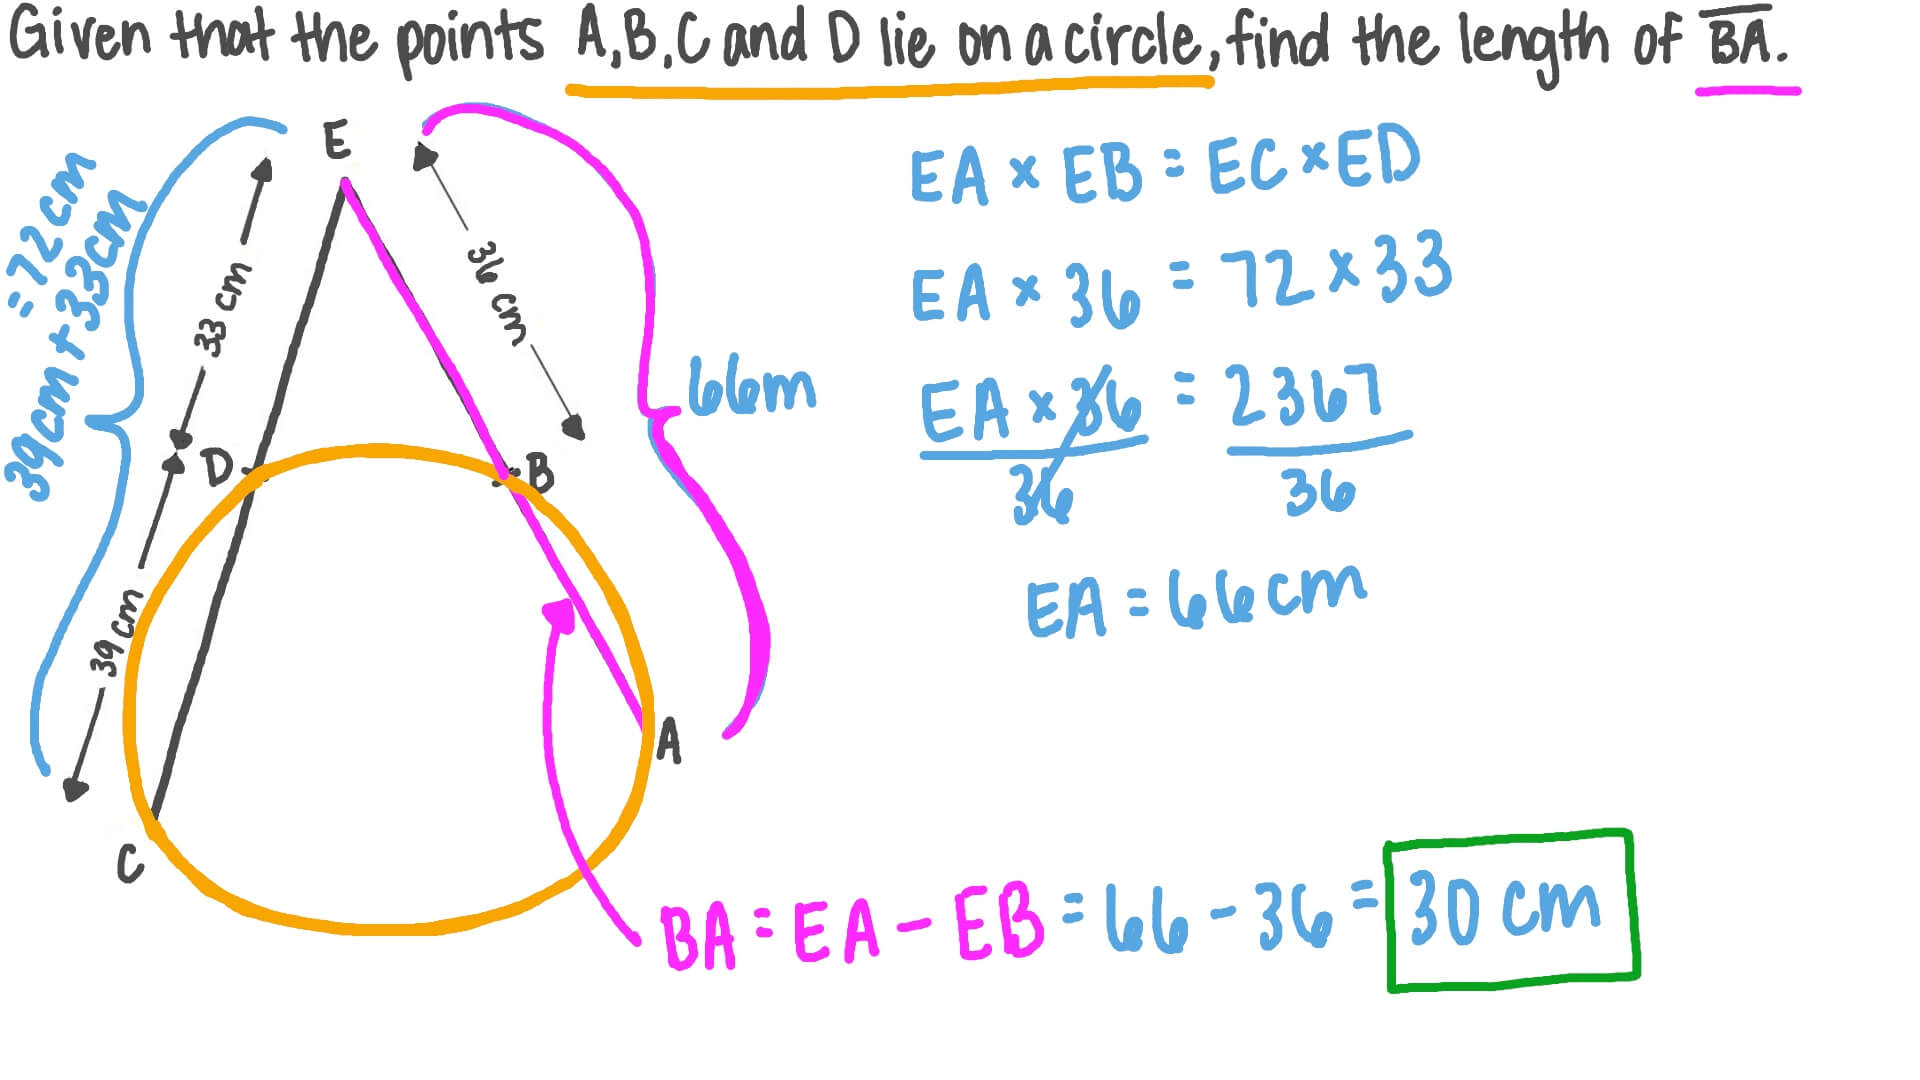 Given that the points A,B,C and D lie on a circle, find the length of BA.
E
= 72 cm
39cm + 33cm
33 cm
36 cm
66m
D
B
39 cm
A
C
EA × EB = EC × ED
EA × 36 = 72 × 33
EA × 36 = 2367
36 36
EA = 66 cm
BA = EA - EB = 66 - 36 = 30 cm